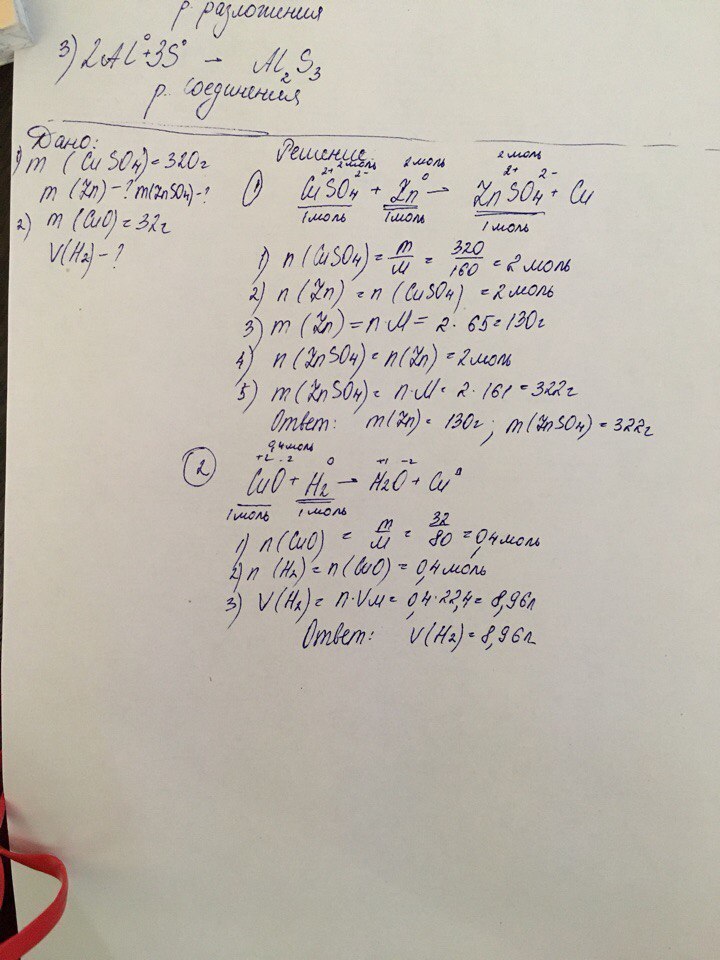 р. разложения
3) 2Al⁰+3S⁰ → Al₂S₃
р. соединения
Дано:
1) m (CuSO₄) = 320г
m (Zn) - ? m(ZnSO₄) - ?
2) m (CuO) = 32г
V(H₂) - ?
Решение
2 моль 2 моль 2 моль
2+ 2- 0 2+ 2-
① CuSO₄ + Zn → ZnSO₄ + Cu
1 моль 1 моль 1 моль
1) n (CuSO₄) = m/M = 320/160 = 2 моль
2) n (Zn) = n (CuSO₄) = 2 моль
3) m (Zn) = n·M = 2·65 = 130г
4) n (ZnSO₄) = n(Zn) = 2 моль
5) m (ZnSO₄) = n·M = 2·161 = 322г
Ответ: m(Zn) = 130г; m(ZnSO₄) = 322г
0,4 моль
+2 -2 0 +1 -2
② CuO + H₂ → H₂O + Cu⁰
1 моль 1 моль
1) n (CuO) = m/M = 32/80 = 0,4 моль
2) n (H₂) = n (CuO) = 0,4 моль
3) V(H₂) = n·Vм = 0,4·22,4 = 8,96л
Ответ: V(H₂) = 8,96л